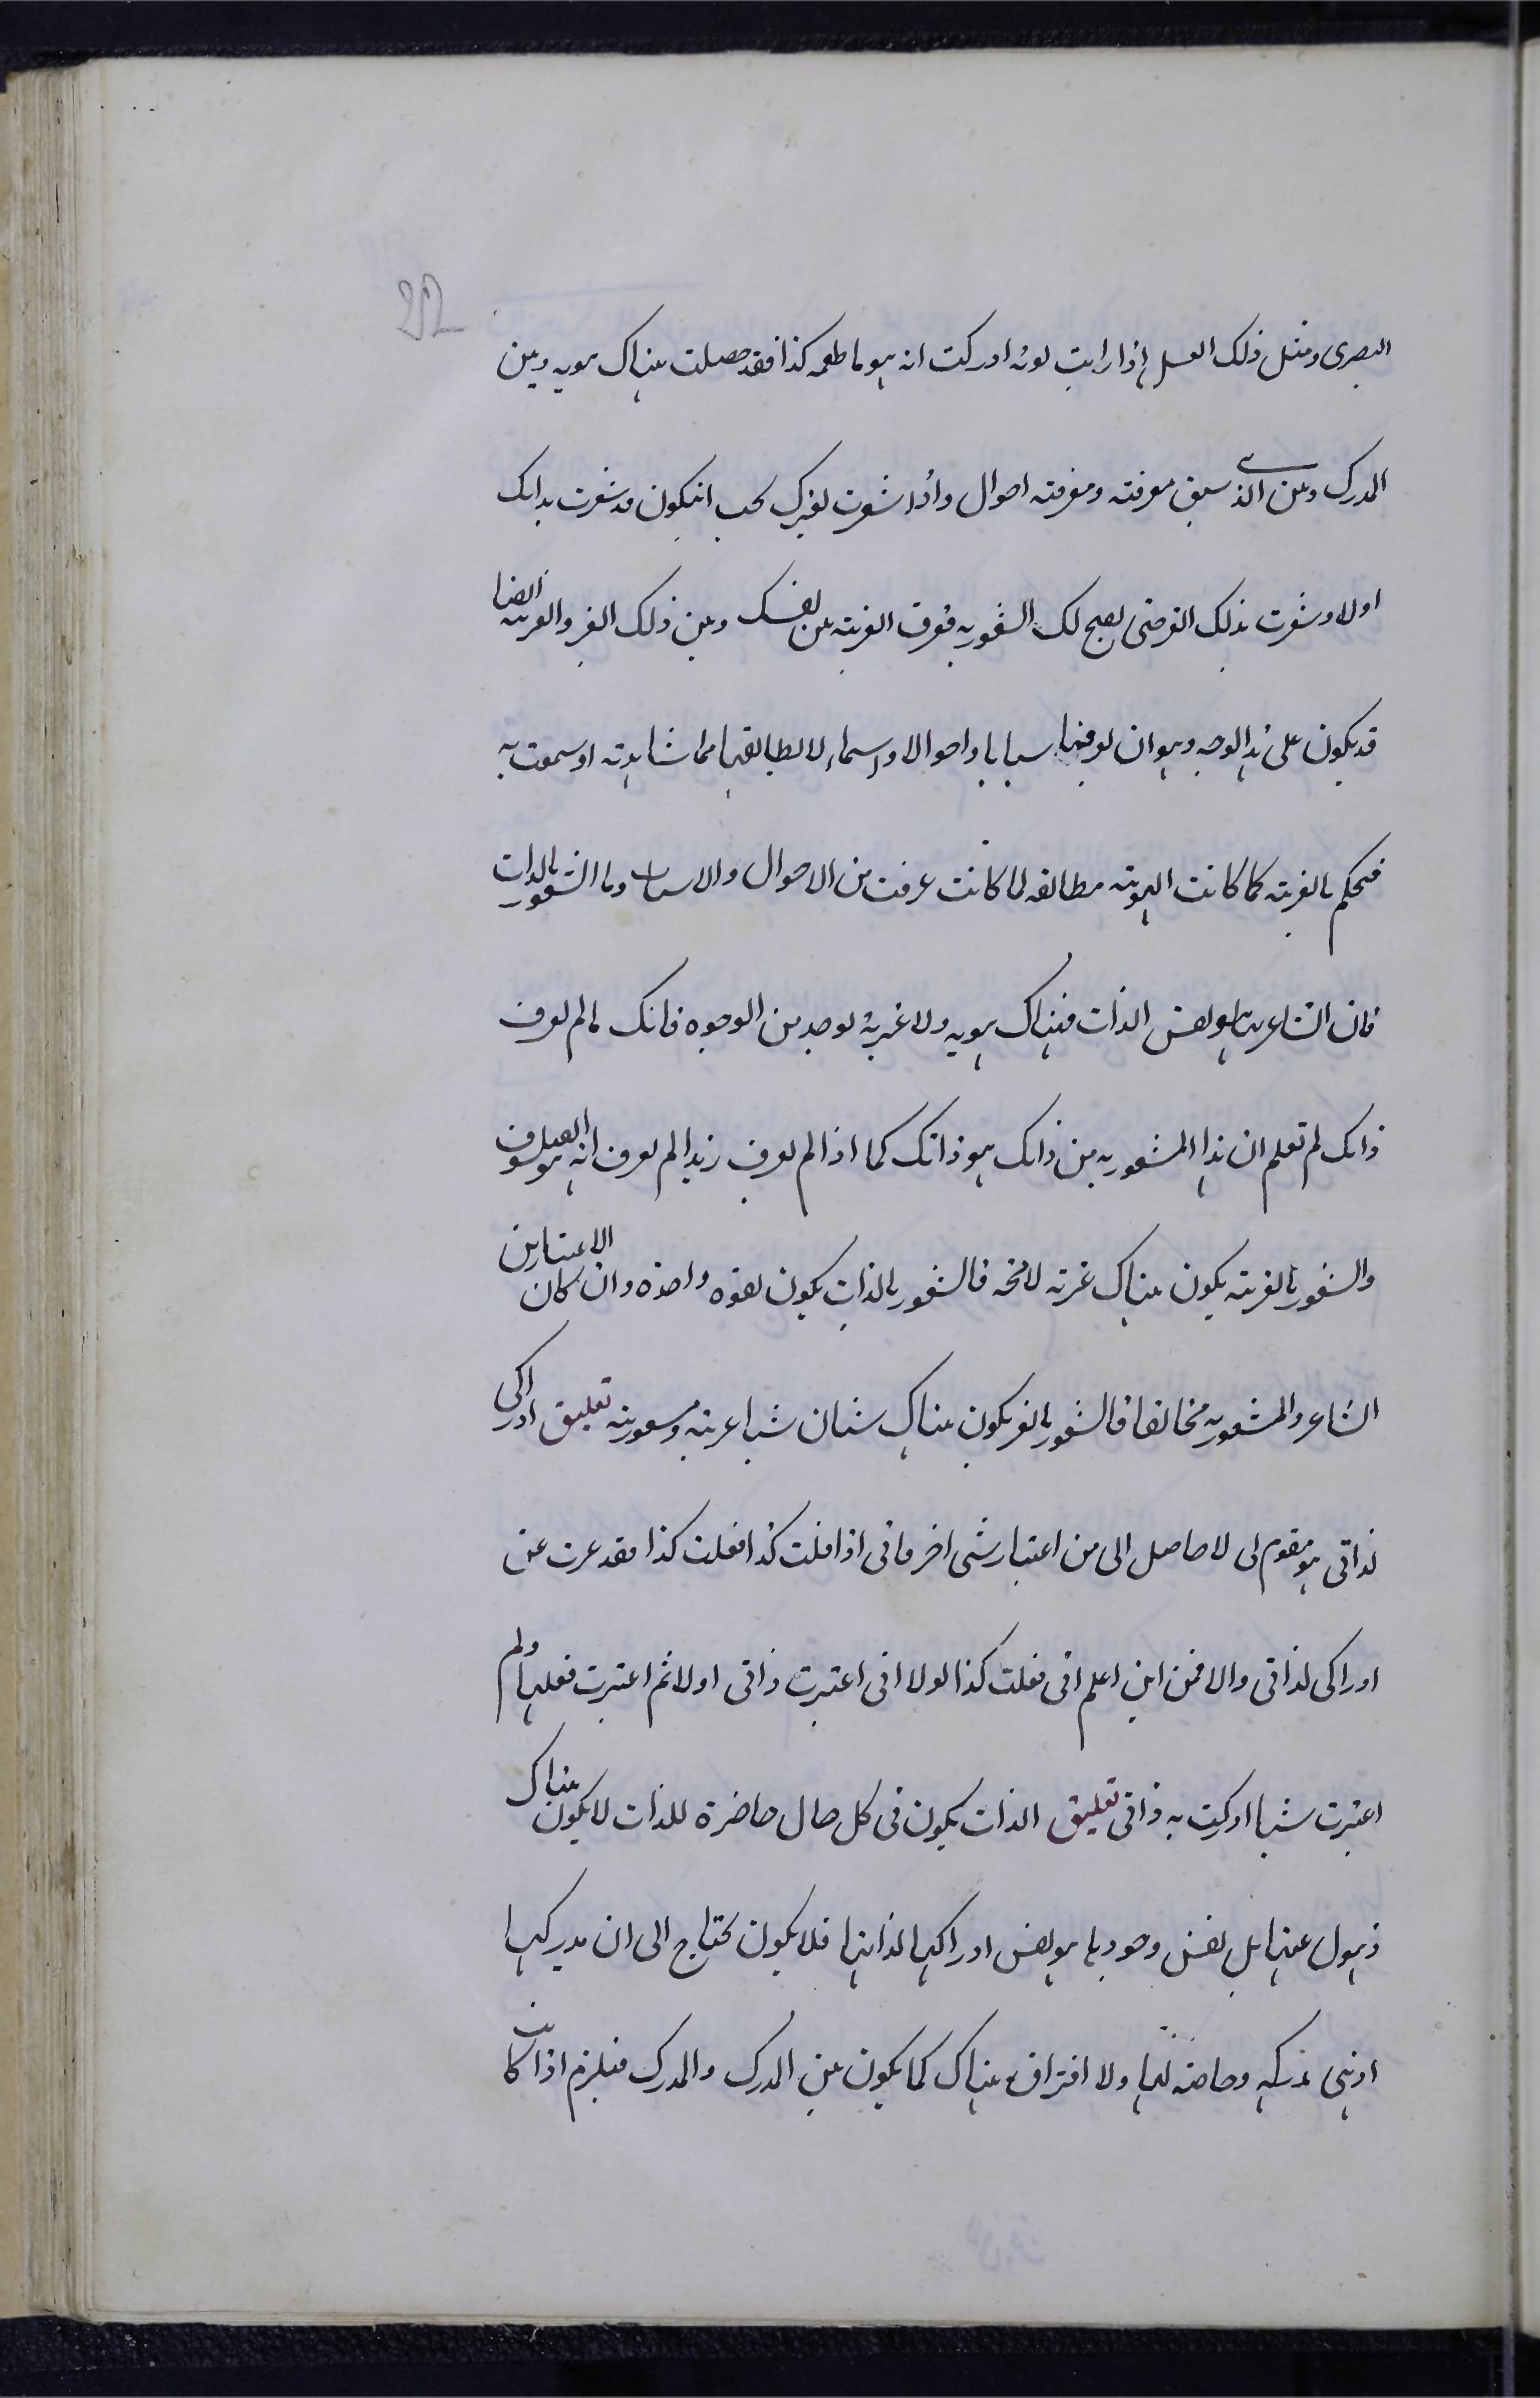 البصرى ومثل ذلك العسل إذا رايت لونه ادركت انه هو ما طعمه كذا فقد حصلت هناك هويه وبين
المدرك وبين الذى سبق معرفته ومعرفته احوال واذا شعرت بغيرك يجب انيكون قد شعرت بذاتك
اولا وشعرت بذلك الغير حتى يصح لك الشعور به فوق الغيرية بين نفسك وبين ذلك الغير والغيرية ايضا
قد يكون على هذا الوجه وهو ان يعرفها سبابا واحوالا واسماء لا يطابقها مما شاهدته او سمعت به
فيحكم بالغيرية كما كانت الهوية مطابقه لما كانت عرفت من الاحوال والاسباب واما الشعور بالذات
فان الشاعر بها هو نفس الذات فهناك هويه ولا غيرية بوجه من الوجوه فانك ما لم تعرف
ذاتك لم تعلم ان هذا المشعور به من ذاتك هو ذاتك كما اذا لم تعرف زيدا لم تعرف انه هو الفيلسوف
والشعور بالغيرية يكون هناك غيرية لا محة فالشعور بالذات يكون بقوة واحدة وان كان الاعتبارين
الشاعر والمشعور به مخالفا فالشعور بالغير يكون هناك شيئان شيا عرية ومشعورية تعليق ادراكى
لذاتى هو مقوم لى لا حاصل الى من اعتبار شى اخر فانى اذا قلت كذا فعلت كذا فقد عبرت عن
ادراكى لذاتى والا فمن اين اعلم انى فعلت كذا لولا انى اعتبرت ذاتى اولا ثم اعتبرت فعلها ولم
اعتبرت شيا ادركت به ذاتى تعليق الذات يكون فى كل حال حاضرة للذات لا يكون هناك
ذهول عنها بل نفس وجودها هو نفس ادراكها لذاتها فلا يكون يحتاج الى ان يدركها
اذ هى مدركه وحاضرة لها ولا افتراق هناك كما يكون بين المدرك والمدرك فيلزم اذا كانت